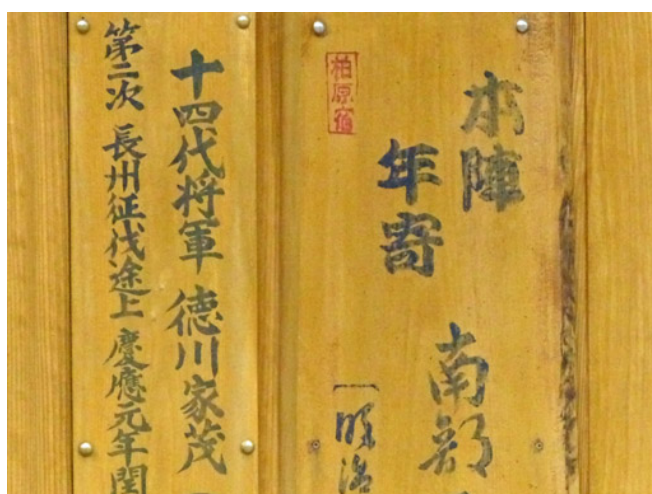 本陣
年寄
南部
柏原宿
〔明治
十四代将軍 徳川家茂
第二次 長州征伐途上 慶應元年閏